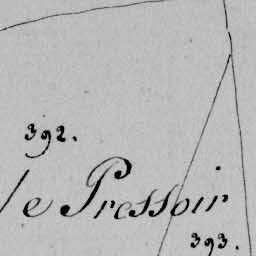 392.
le Pressoir
393.